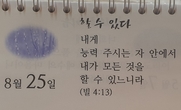 할 수 있다
내게
능력 주시는 자 안에서
내가 모든 것을
할 수 있느니라
(빌 4:13)
8월 25일